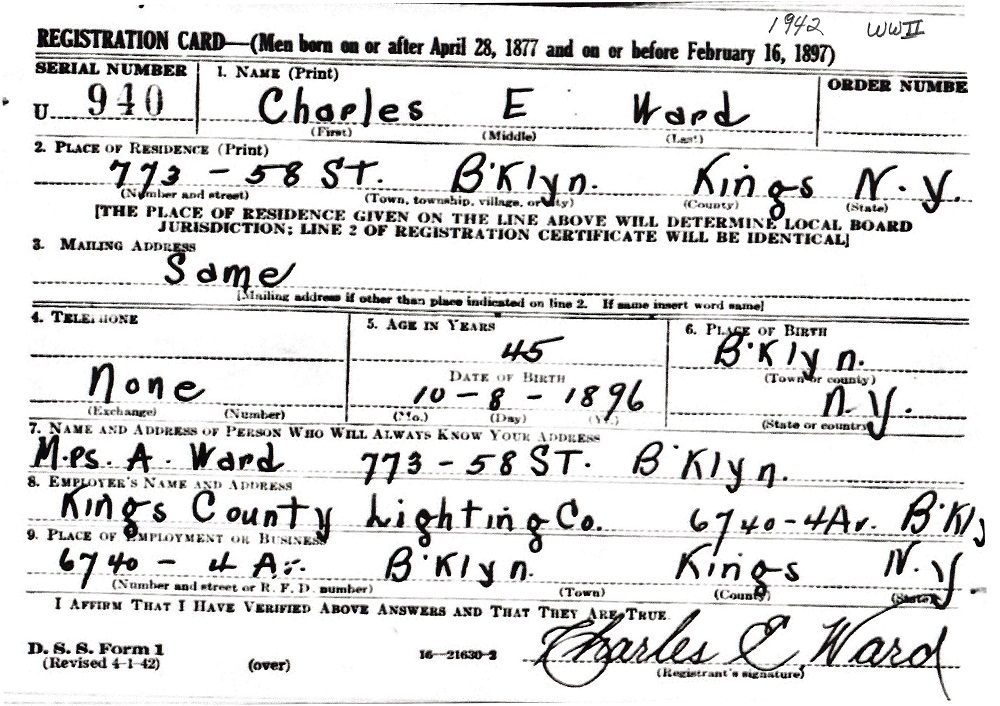 1942 WWII
REGISTRATION CARD—(Men born on or after April 28, 1877 and on or before February 16, 1897)
SERIAL NUMBER
1. NAME (Print)
ORDER NUMBE
U 940
Charles E Ward
(First) (Middle) (Last)
2. PLACE OF RESIDENCE (Print)
773 - 58 ST. B'Klyn. Kings N.y.
(Number and street) (Town, township, village, or city) (County) (State)
[THE PLACE OF RESIDENCE GIVEN ON THE LINE ABOVE WILL DETERMINE LOCAL BOARD
JURISDICTION; LINE 2 OF REGISTRATION CERTIFICATE WILL BE IDENTICAL]
3. MAILING ADDRESS
Same
[Mailing address if other than place indicated on line 2. If same insert word same]
4. TELEPHONE
None
(Exchange) (Number)
5. AGE IN YEARS
45
DATE OF BIRTH
10 - 8 - 1896
(Mo.) (Day) (Yr.)
6. PLACE OF BIRTH
B'Klyn.
(Town or county)
n.y.
(State or country)
7. NAME AND ADDRESS OF PERSON WHO WILL ALWAYS KNOW YOUR ADDRESS
Mrs. A. Ward 773 - 58 ST. B'Klyn.
8. EMPLOYER'S NAME AND ADDRESS
Kings County Lighting Co. 6740 - 4 Av. B'Kly
9. PLACE OF EMPLOYMENT OR BUSINESS
6740 - 4 Av. B'Klyn. Kings N.y
(Number and street or R. F. D. number) (Town) (County) (State)
I AFFIRM THAT I HAVE VERIFIED ABOVE ANSWERS AND THAT THEY ARE TRUE
D. S. S. Form 1
(Revised 4-1-42) (over) 16—21630-2
Charles E. Ward
(Registrant's signature)